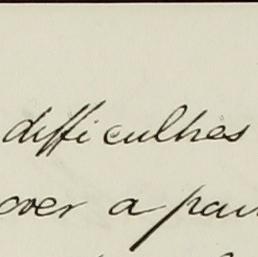 difficulties
over a pair